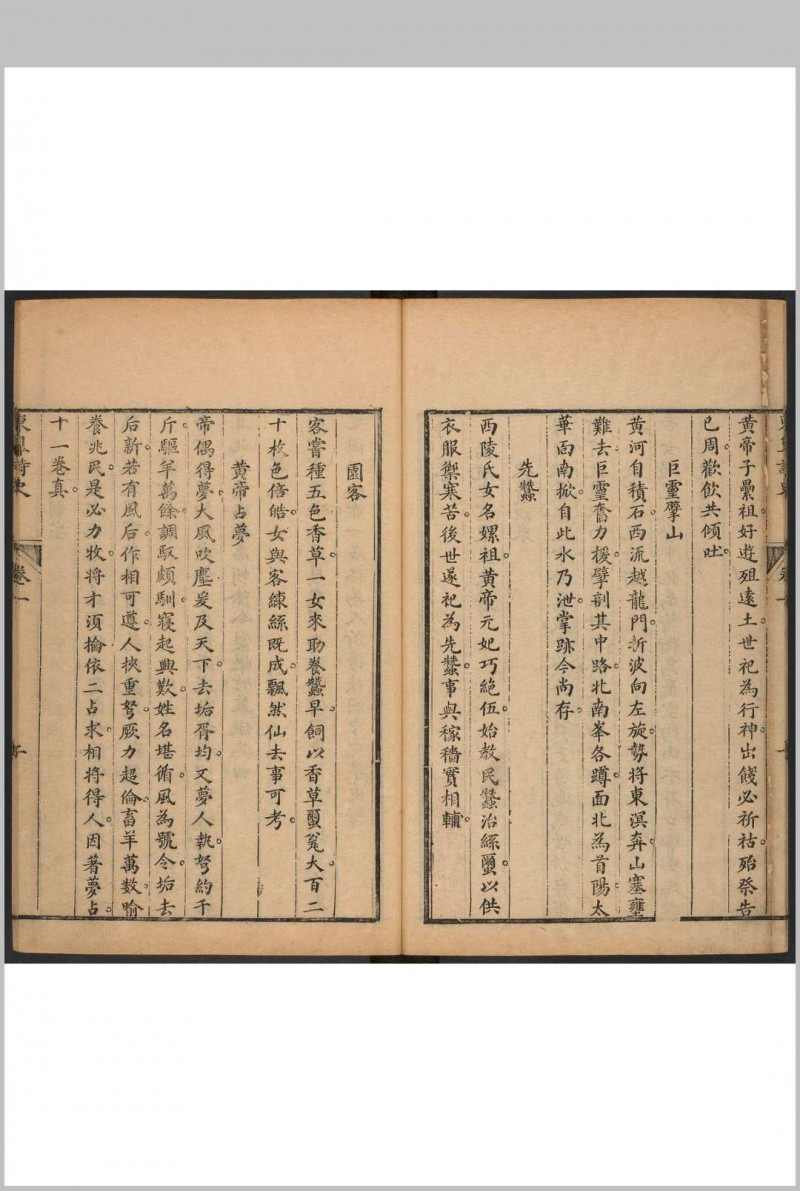 黃帝子纍祖好遊殂遠土世祀為行神出餞必祈祜殆祭告
巳周歡飲共傾吐
巨靈擘山
黃河自積石西流越龍門折波向左旋勢將東溟奔山塞壅
難去巨靈奮力援擘剖其中路北南峯各蹲面北為首陽太
華面南掀自此水乃泄掌跡今尚存
先蠶
西陵氏女名嫘祖黃帝元妃巧絕伍始教民蠶治絲蠒以供
衣服禦寒苦後世遂祀為先蠶事與稼穡實相輔
園客
客嘗種五色香草一女來助養蠶早飼以香草蠒瓮大百二
十枚色偣皓女與客練絲既成飄然仙去事可考
黃帝占夢
帝偶得夢大風吹塵爰及天下去垢胥均又夢人執弩約千
斤驅羊萬餘調馭頗馴寢起興歎姓名堪循風為號令垢去
后新若有風后作相可遵人挾重弩厥力超倫畜羊萬數喻
養兆民是必力牧將才須掄依二占求相將得人因著夢占
十一卷真
卷一